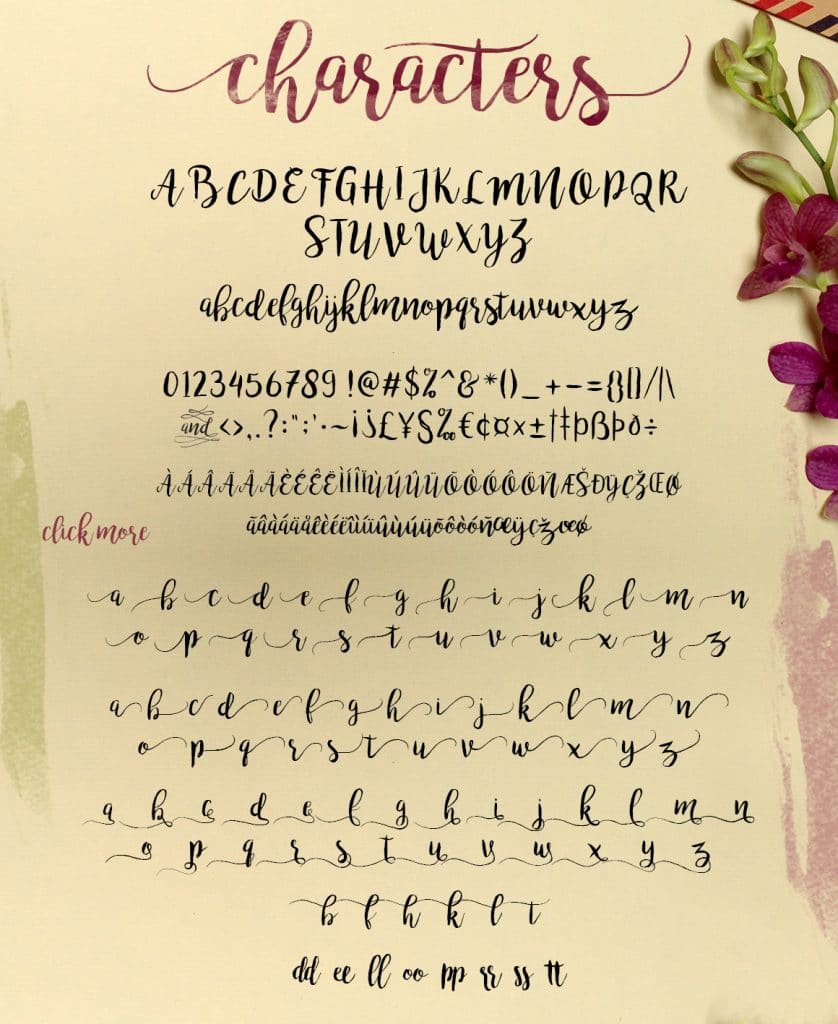 characters
ABCDEFGHIJKLMNOPQR
STUVWXYZ
abcdefghijklmnopqrstuvwxyz
0123456789 !@#$%^&*()_+-={}[]/|\
and <>,.?:";'·~¡j£¥§‰€¢¤×±†‡þßÞð÷
ÀÁÂÃÄÅĀÈÉÊËÌÍÎÏÙÚÛÜÕÒÓÔÖÑÆŠÐŸÇŽŒØ
click more
ãâàáäåêèéëîìíïûùúüõôòóñæÿçžœø
a b c d e f g h i j k l m n
o p q r s t u v w x y z
a b c d e f g h i j k l m n
o p q r s t u v w x y z
a b c d e f g h i j k l m n
o p q r s t u v w x y z
b f h k l t
dd ee ll oo pp rr ss tt